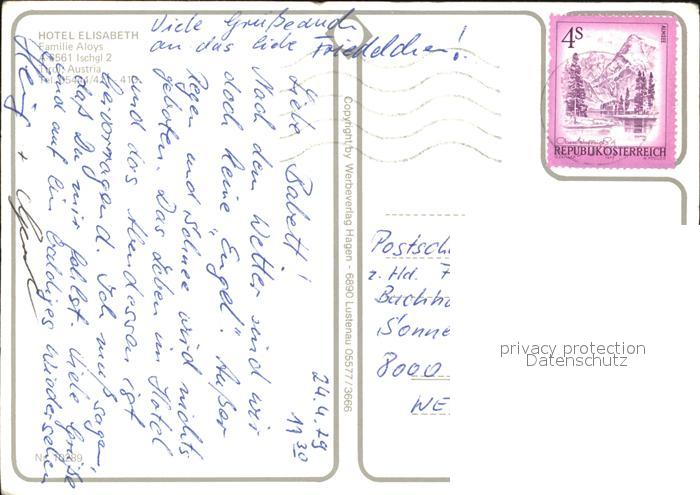 HOTEL ELISABETH
Familie Aloys
A-6561 Ischgl 2
Tirol Austria
Tel. 05444/
Viele Grüße auch
an das liebe Friedelchen!
24.4.79
11 30
Liebe Babett!
Nach dem Wetter sind wir
doch keine "Engel". Außer
Regen und Schnee wird nichts
geboten. Das Leben im Hotel
und das Abendessen ist
hervorragend. Ich muß sagen,
daß Du mir fehlst. Viele Grüße
und auf ein baldiges Wiedersehen
Heinz +
Copyright by Werbeverlag Hagen - 6890 Lustenau 05577/3666
4S
ALMSEE
REPUBLIK ÖSTERREICH
Postsch
z. Hd. F
Bachha
Sonne
8000
WE
privacy protection
Datenschutz